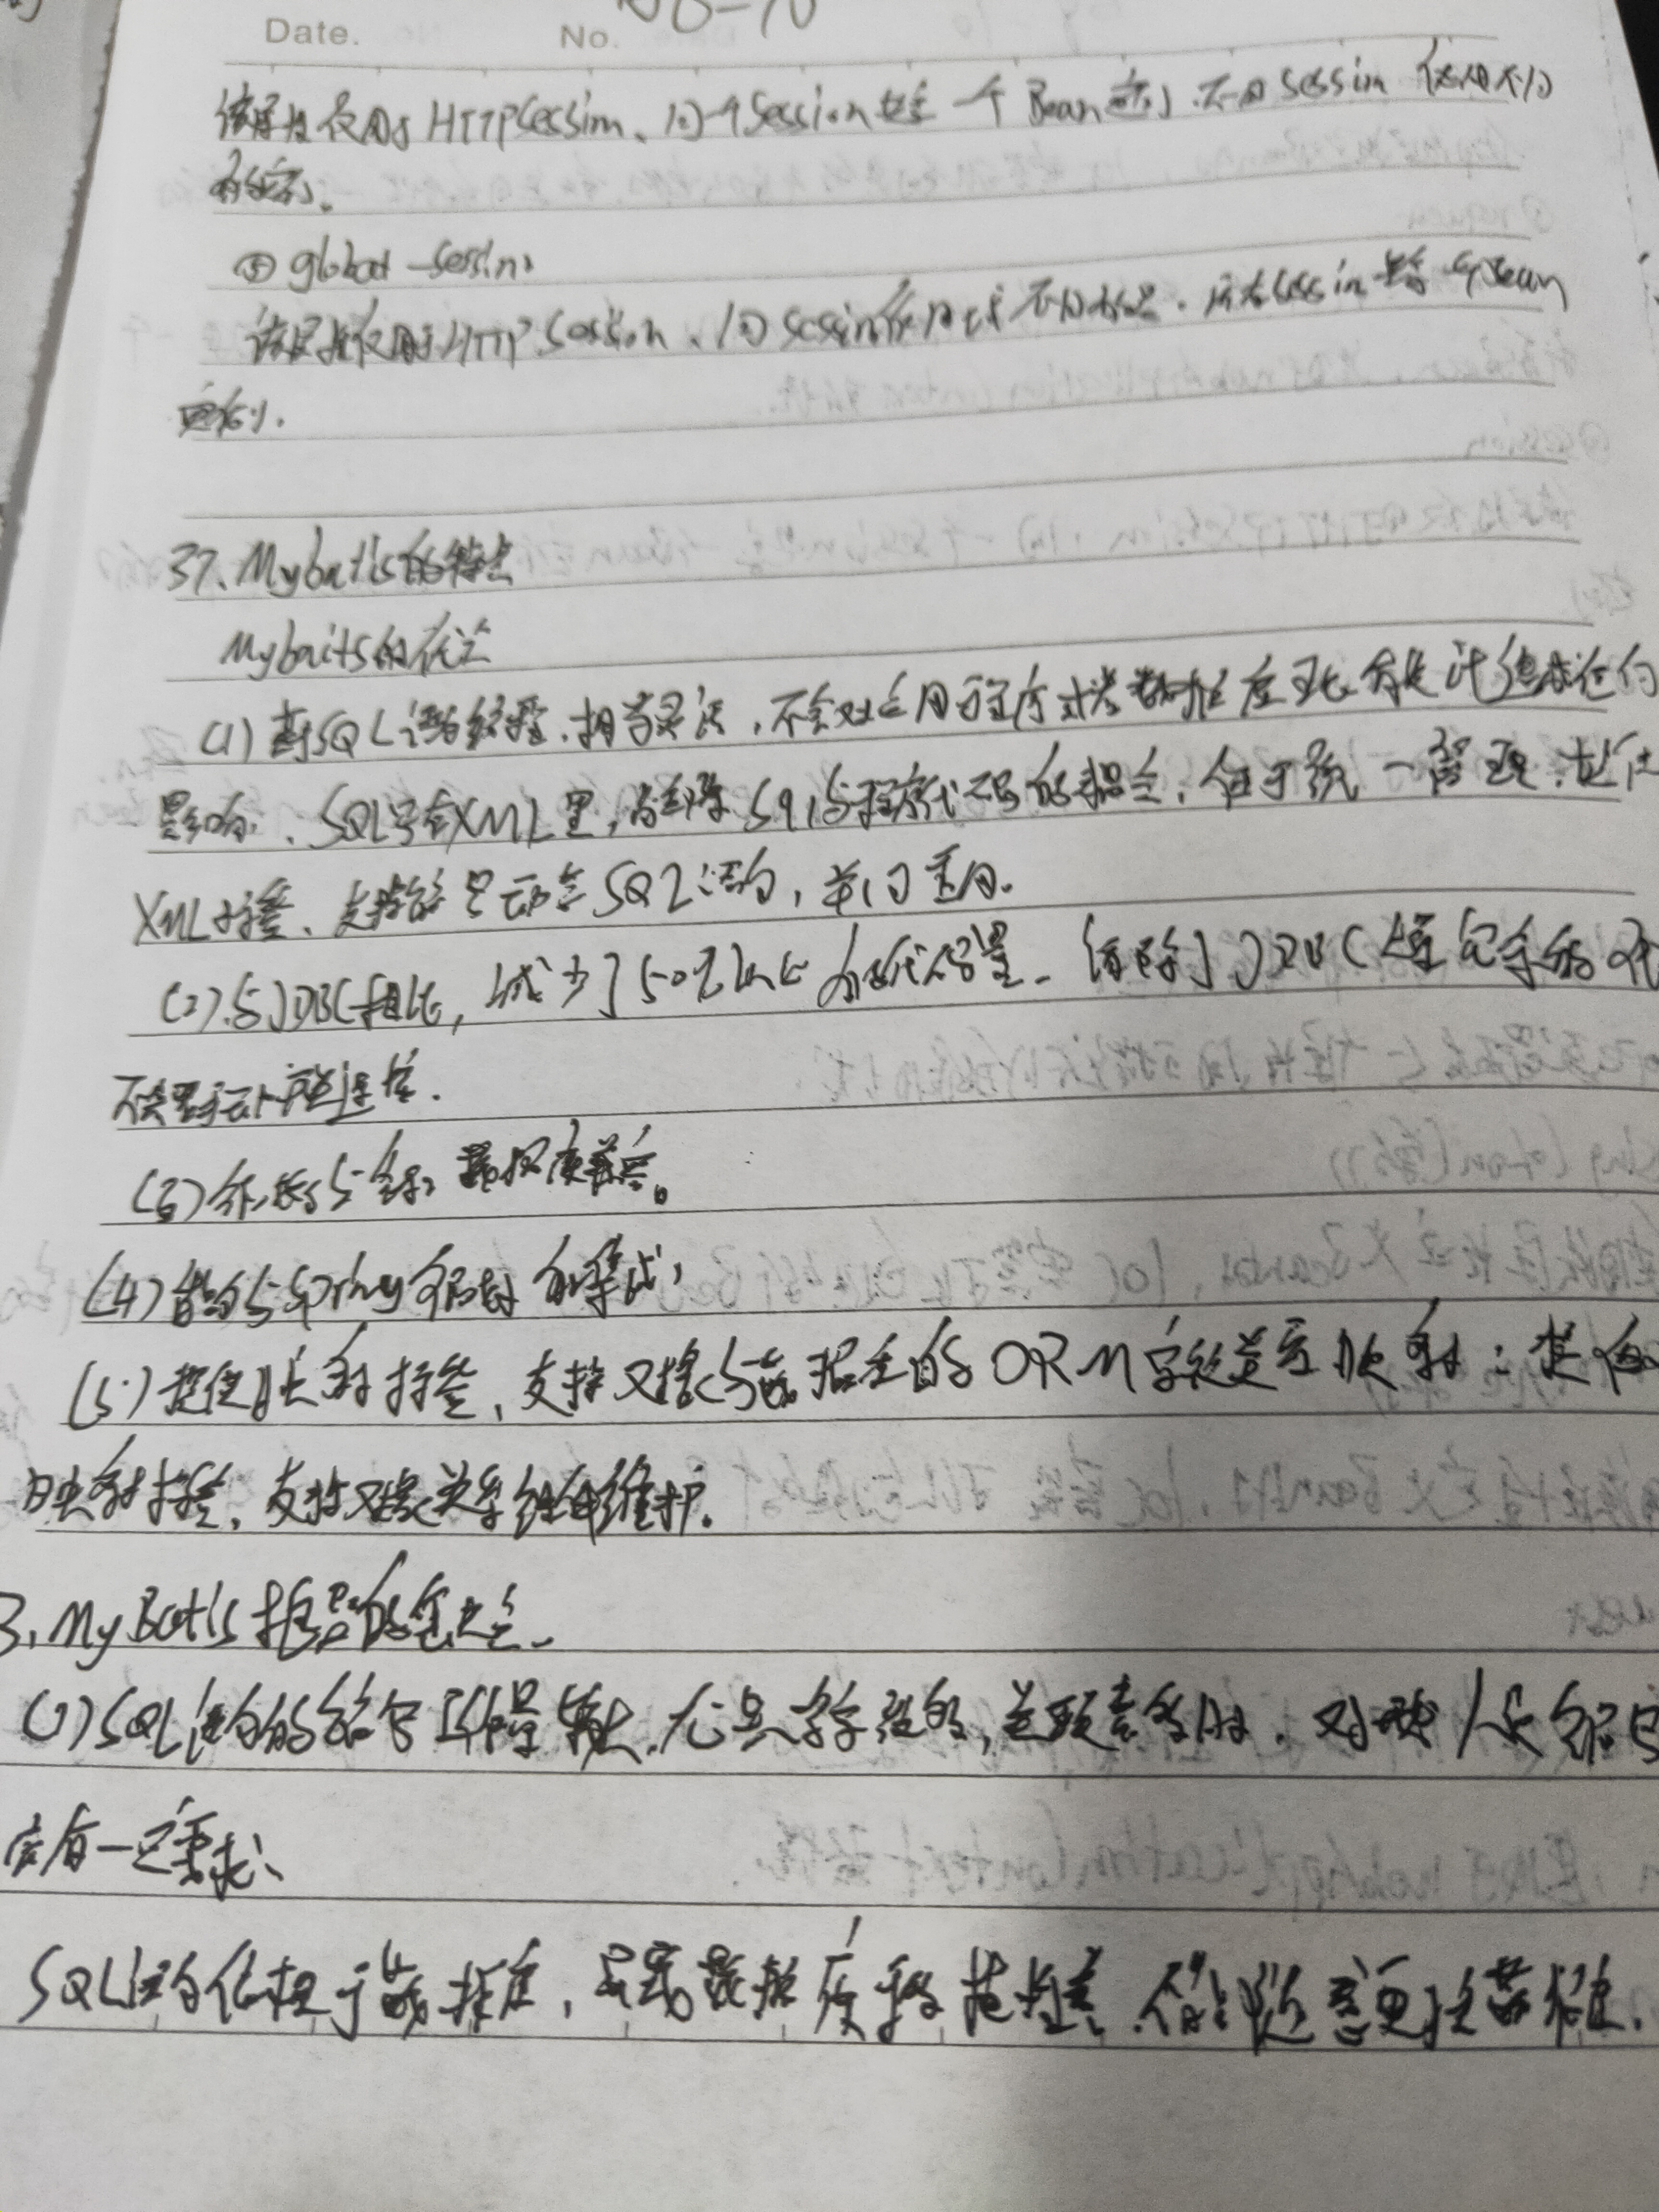 Date. No.
该属性仅用于HTTPSession、同一个Session共享一个Bean实例.不同Session使用不同
的实例.
⑤global-session
该属性仅用于HTTP Session、同session作用域不同的是.所有session共享一个Bean
实例.
37.Mybatis的特点
Mybaits的优点
(1)基于SQL语句编程.相当灵活.不会对应用程序或者数据库现有设计造成任何
影响.SQL写在XML里,解除sql与程序代码的耦合,便于统一管理.提供
XML标签、支持编写动态SQL语句,并可重用.
(2).与JDBC相比,减少了50%以上的代码量.消除了JDBC大量冗余的
不
(3)很好的与各种数据库兼容。
(4)能够与Spring很好的集成,
(5)提供映射标签,支持对象与数据库的ORM字段关系映射:提供
映射标签,支持对象关系组件维护.
3.MyBatis框架的缺点.
(1)SQL语句的编写工作量较大.尤其字段多,关联表多时.对开发人员编写
有一定要求、
SQL语句依赖于数据库,导致数据库移植性差.不能随意更换数据库.